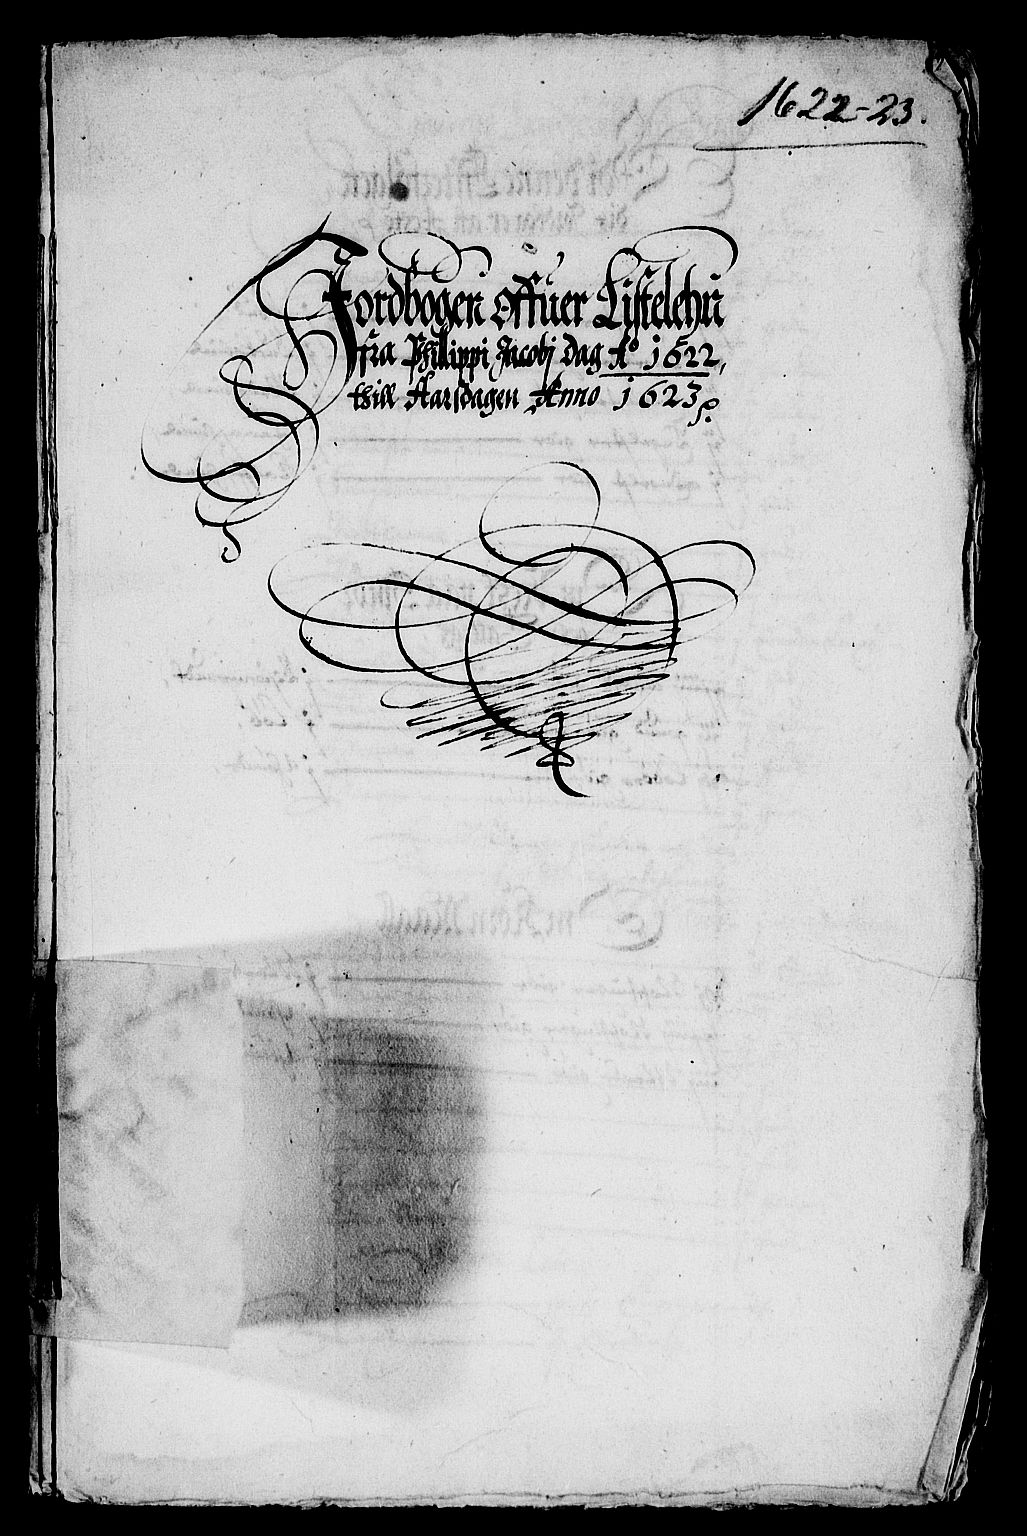 1622-23.
Jordbogen offuer Listelehn
fra Phillippi Jacobj dag Ao 1622,
thill Aarsdagen Anno 1623